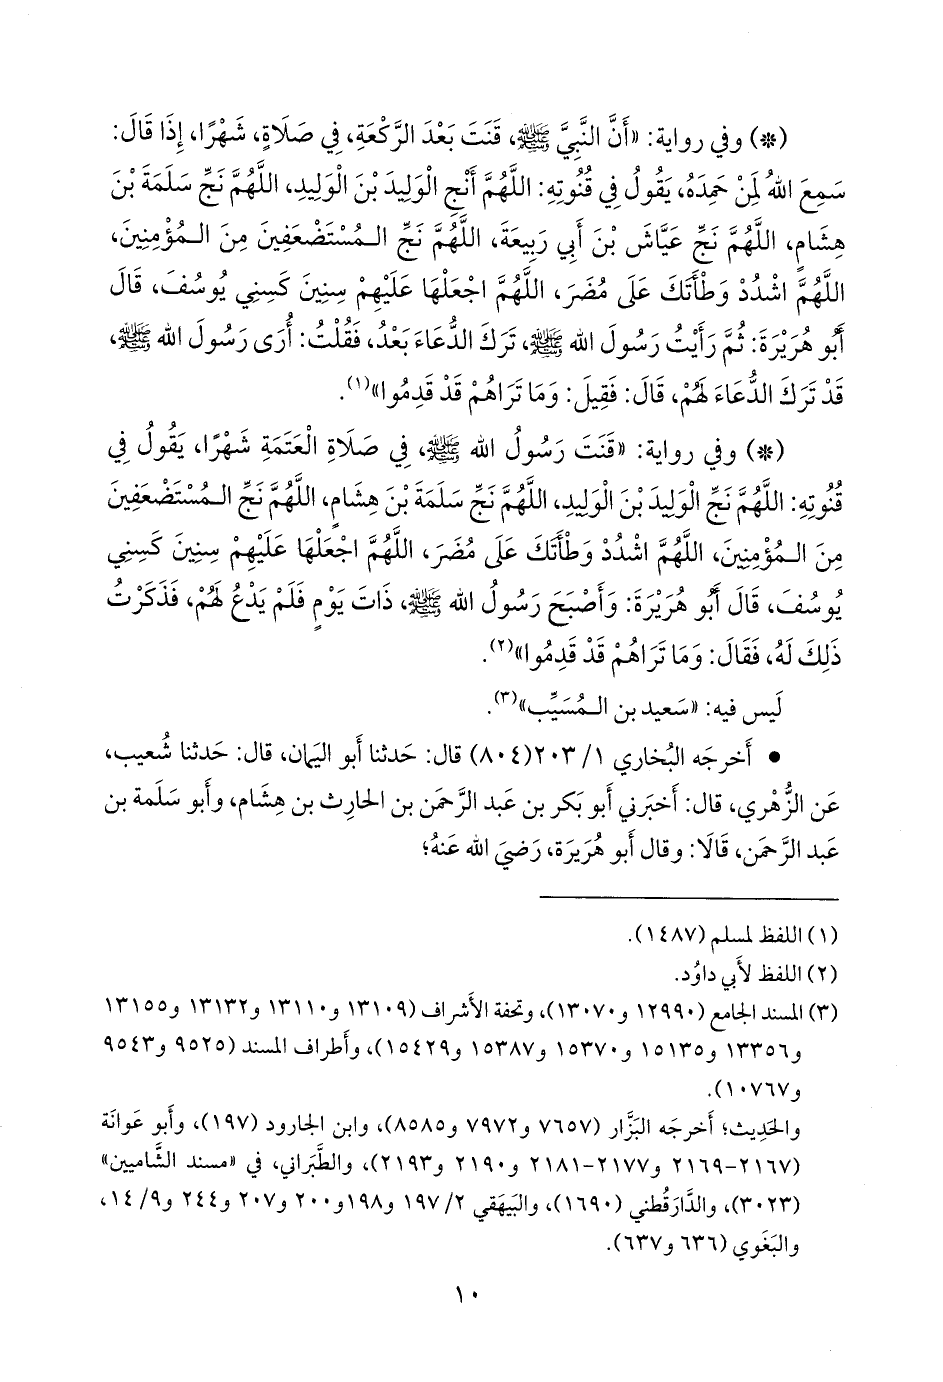 (*) وفي رواية: «أَنَّ النَّبِيَّ ﷺ، قَنَتَ بَعْدَ الرَّكْعَةِ، فِي صَلَاةٍ، شَهْرًا، إِذَا قَالَ:
سَمِعَ اللهُ لِمَنْ حَمِدَهُ، يَقُولُ فِي قُنُوتِهِ: اللَّهُمَّ أَنْجِ الْوَلِيدَ بْنَ الْوَلِيدِ، اللَّهُمَّ نَجِّ سَلَمَةَ بْنَ
هِشَامٍ، اللَّهُمَّ نَجِّ عَيَّاشَ بْنَ أَبِي رَبِيعَةَ، اللَّهُمَّ نَجِّ الْمُسْتَضْعَفِينَ مِنَ الْمُؤْمِنِينَ،
اللَّهُمَّ اشْدُدْ وَطْأَتَكَ عَلَى مُضَرَ، اللَّهُمَّ اجْعَلْهَا عَلَيْهِمْ سِنِينَ كَسِنِي يُوسُفَ، قَالَ
أَبُو هُرَيْرَةَ: ثُمَّ رَأَيْتُ رَسُولَ الله ﷺ، تَرَكَ الدُّعَاءَ بَعْدُ، فَقُلْتُ: أُرَى رَسُولَ الله ﷺ،
قَدْ تَرَكَ الدُّعَاءَ لَهُمْ، قَالَ: فَقِيلَ: وَمَا تَرَاهُمْ قَدْ قَدِمُوا»(١).
(*) وفي رواية: «قَنَتَ رَسُولُ الله ﷺ، فِي صَلَاةِ الْعَتَمَةِ شَهْرًا، يَقُولُ فِي
قُنُوتِهِ: اللَّهُمَّ نَجِّ الْوَلِيدَ بْنَ الْوَلِيدِ، اللَّهُمَّ نَجِّ سَلَمَةَ بْنَ هِشَامٍ، اللَّهُمَّ نَجِّ الْمُسْتَضْعَفِينَ
مِنَ الْمُؤْمِنِينَ، اللَّهُمَّ اشْدُدْ وَطْأَتَكَ عَلَى مُضَرَ، اللَّهُمَّ اجْعَلْهَا عَلَيْهِمْ سِنِينَ كَسِنِي
يُوسُفَ، قَالَ أَبُو هُرَيْرَةَ: وَأَصْبَحَ رَسُولُ الله ﷺ، ذَاتَ يَوْمٍ فَلَمْ يَدْعُ لَهُمْ، فَذَكَرْتُ
ذَلِكَ لَهُ، فَقَالَ: وَمَا تَرَاهُمْ قَدْ قَدِمُوا»(٢).
لَيس فيه: «سَعيد بن الـمُسَيِّب»(٣).
• أَخرجَه البُخاري ١/ ٢٠٣(٨٠٤) قال: حَدثنا أَبو اليَمان، قال: حَدثنا شُعيب،
عَن الزُّهْري، قال: أَخبَرني أَبو بَكر بن عَبد الرَّحمَن بن الحارِث بن هِشَام، وأَبو سَلَمة بن
عَبد الرَّحمَن، قَالَا: وقال أَبو هُرَيرَة، رَضيَ الله عَنهُ؛
(١) اللفظ لمسلم (١٤٨٧).
(٢) اللفظ لأَبي داوُد.
(٣) المسند الجامع (١٢٩٩٠ و١٣٠٧٠)، وتحفة الأَشراف (١٣١٠٩ و١٣١١٠ و١٣١٣٢ و١٣١٥٥
و١٣٣٥٦ و١٥١٣٥ و١٥٣٧٠ و١٥٣٨٧ و١٥٤٢٩)، وأَطراف المسند (٩٥٢٥ و٩٥٤٣
و١٠٧٦٧).
والحَدِيث؛ أَخرجَه البَزَّار (٧٦٥٧ و٧٩٧٢ و٨٥٨٥)، وابن الجارود (١٩٧)، وأَبو عَوانَة
(٢١٦٧-٢١٦٩ و٢١٧٧-٢١٨١ و٢١٩٠ و٢١٩٣)، والطَّبَراني، في «مسند الشَّاميين»
(٣٠٢٣)، والدَّارَقُطني (١٦٩٠)، والبَيهَقي ٢/ ١٩٧ و١٩٨و٢٠٠ و٢٠٧ و٢٤٤ و٩/ ١٤،
والبَغَوي (٦٣٦ و٦٣٧).
١٠